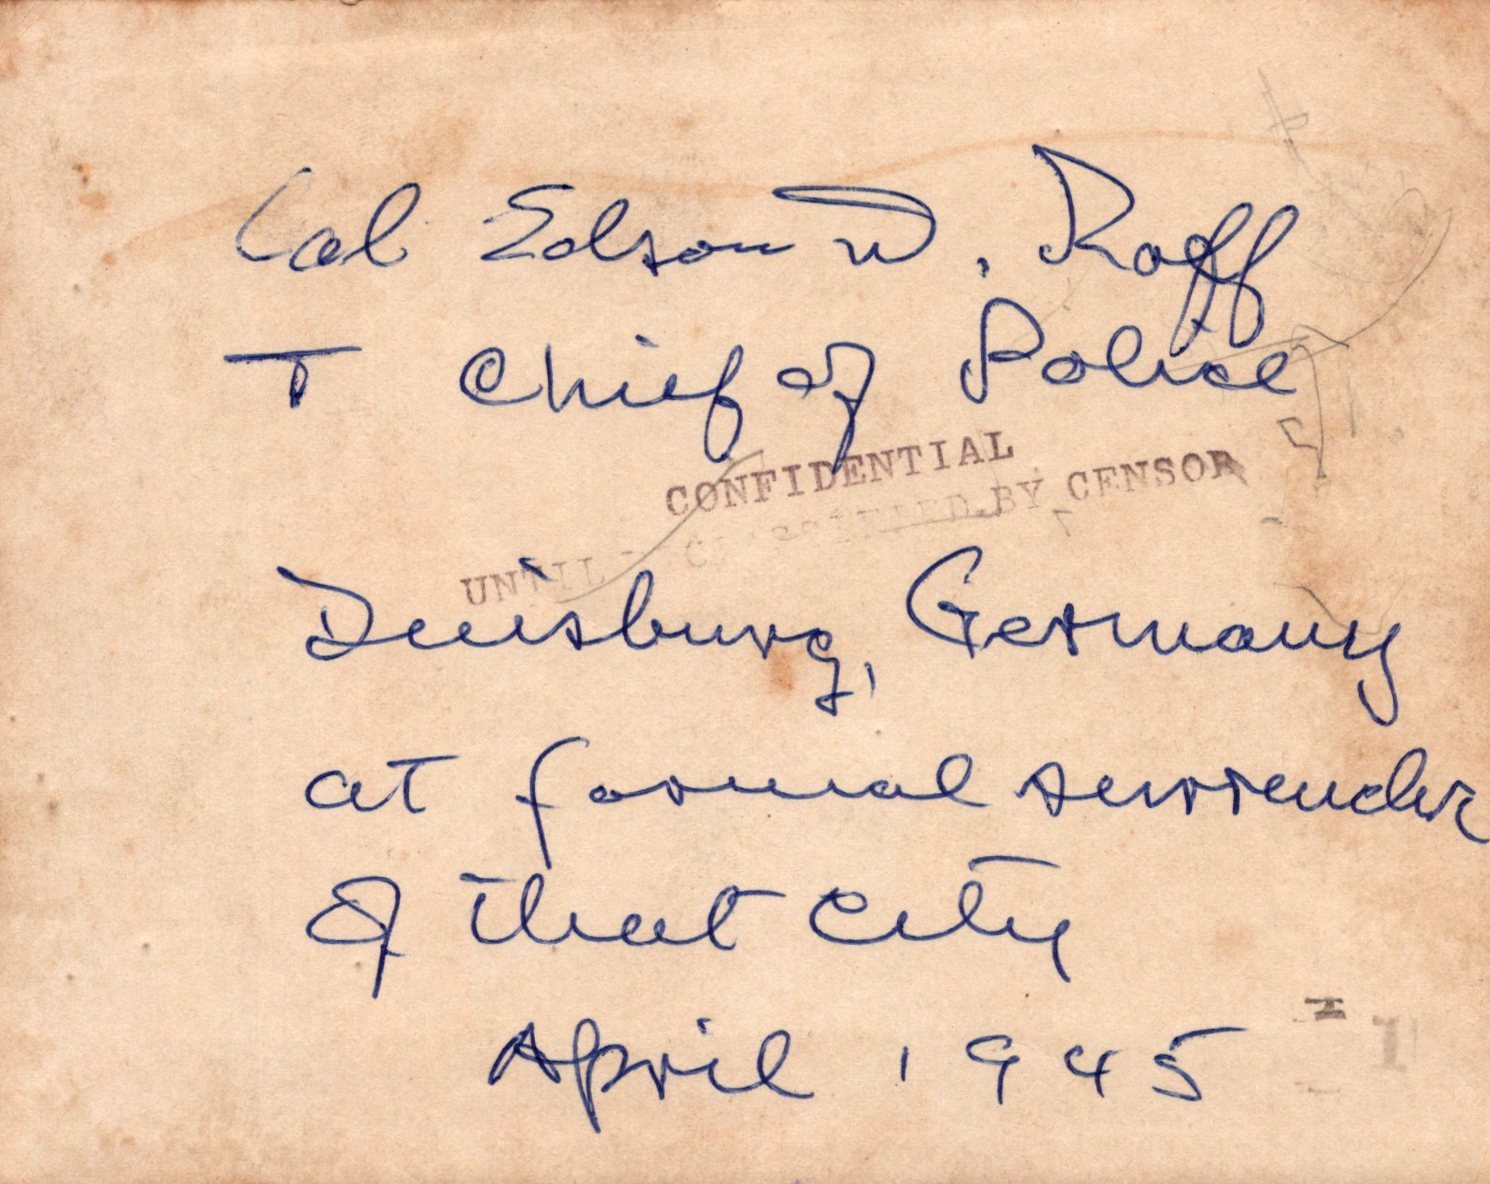 Col Edson D. Raff
T Chief of Police
CONFIDENTIAL
UNTIL DECLASSIFIED BY CENSOR
Duisburg, Germany
at formal surrender
of that city
April 1945